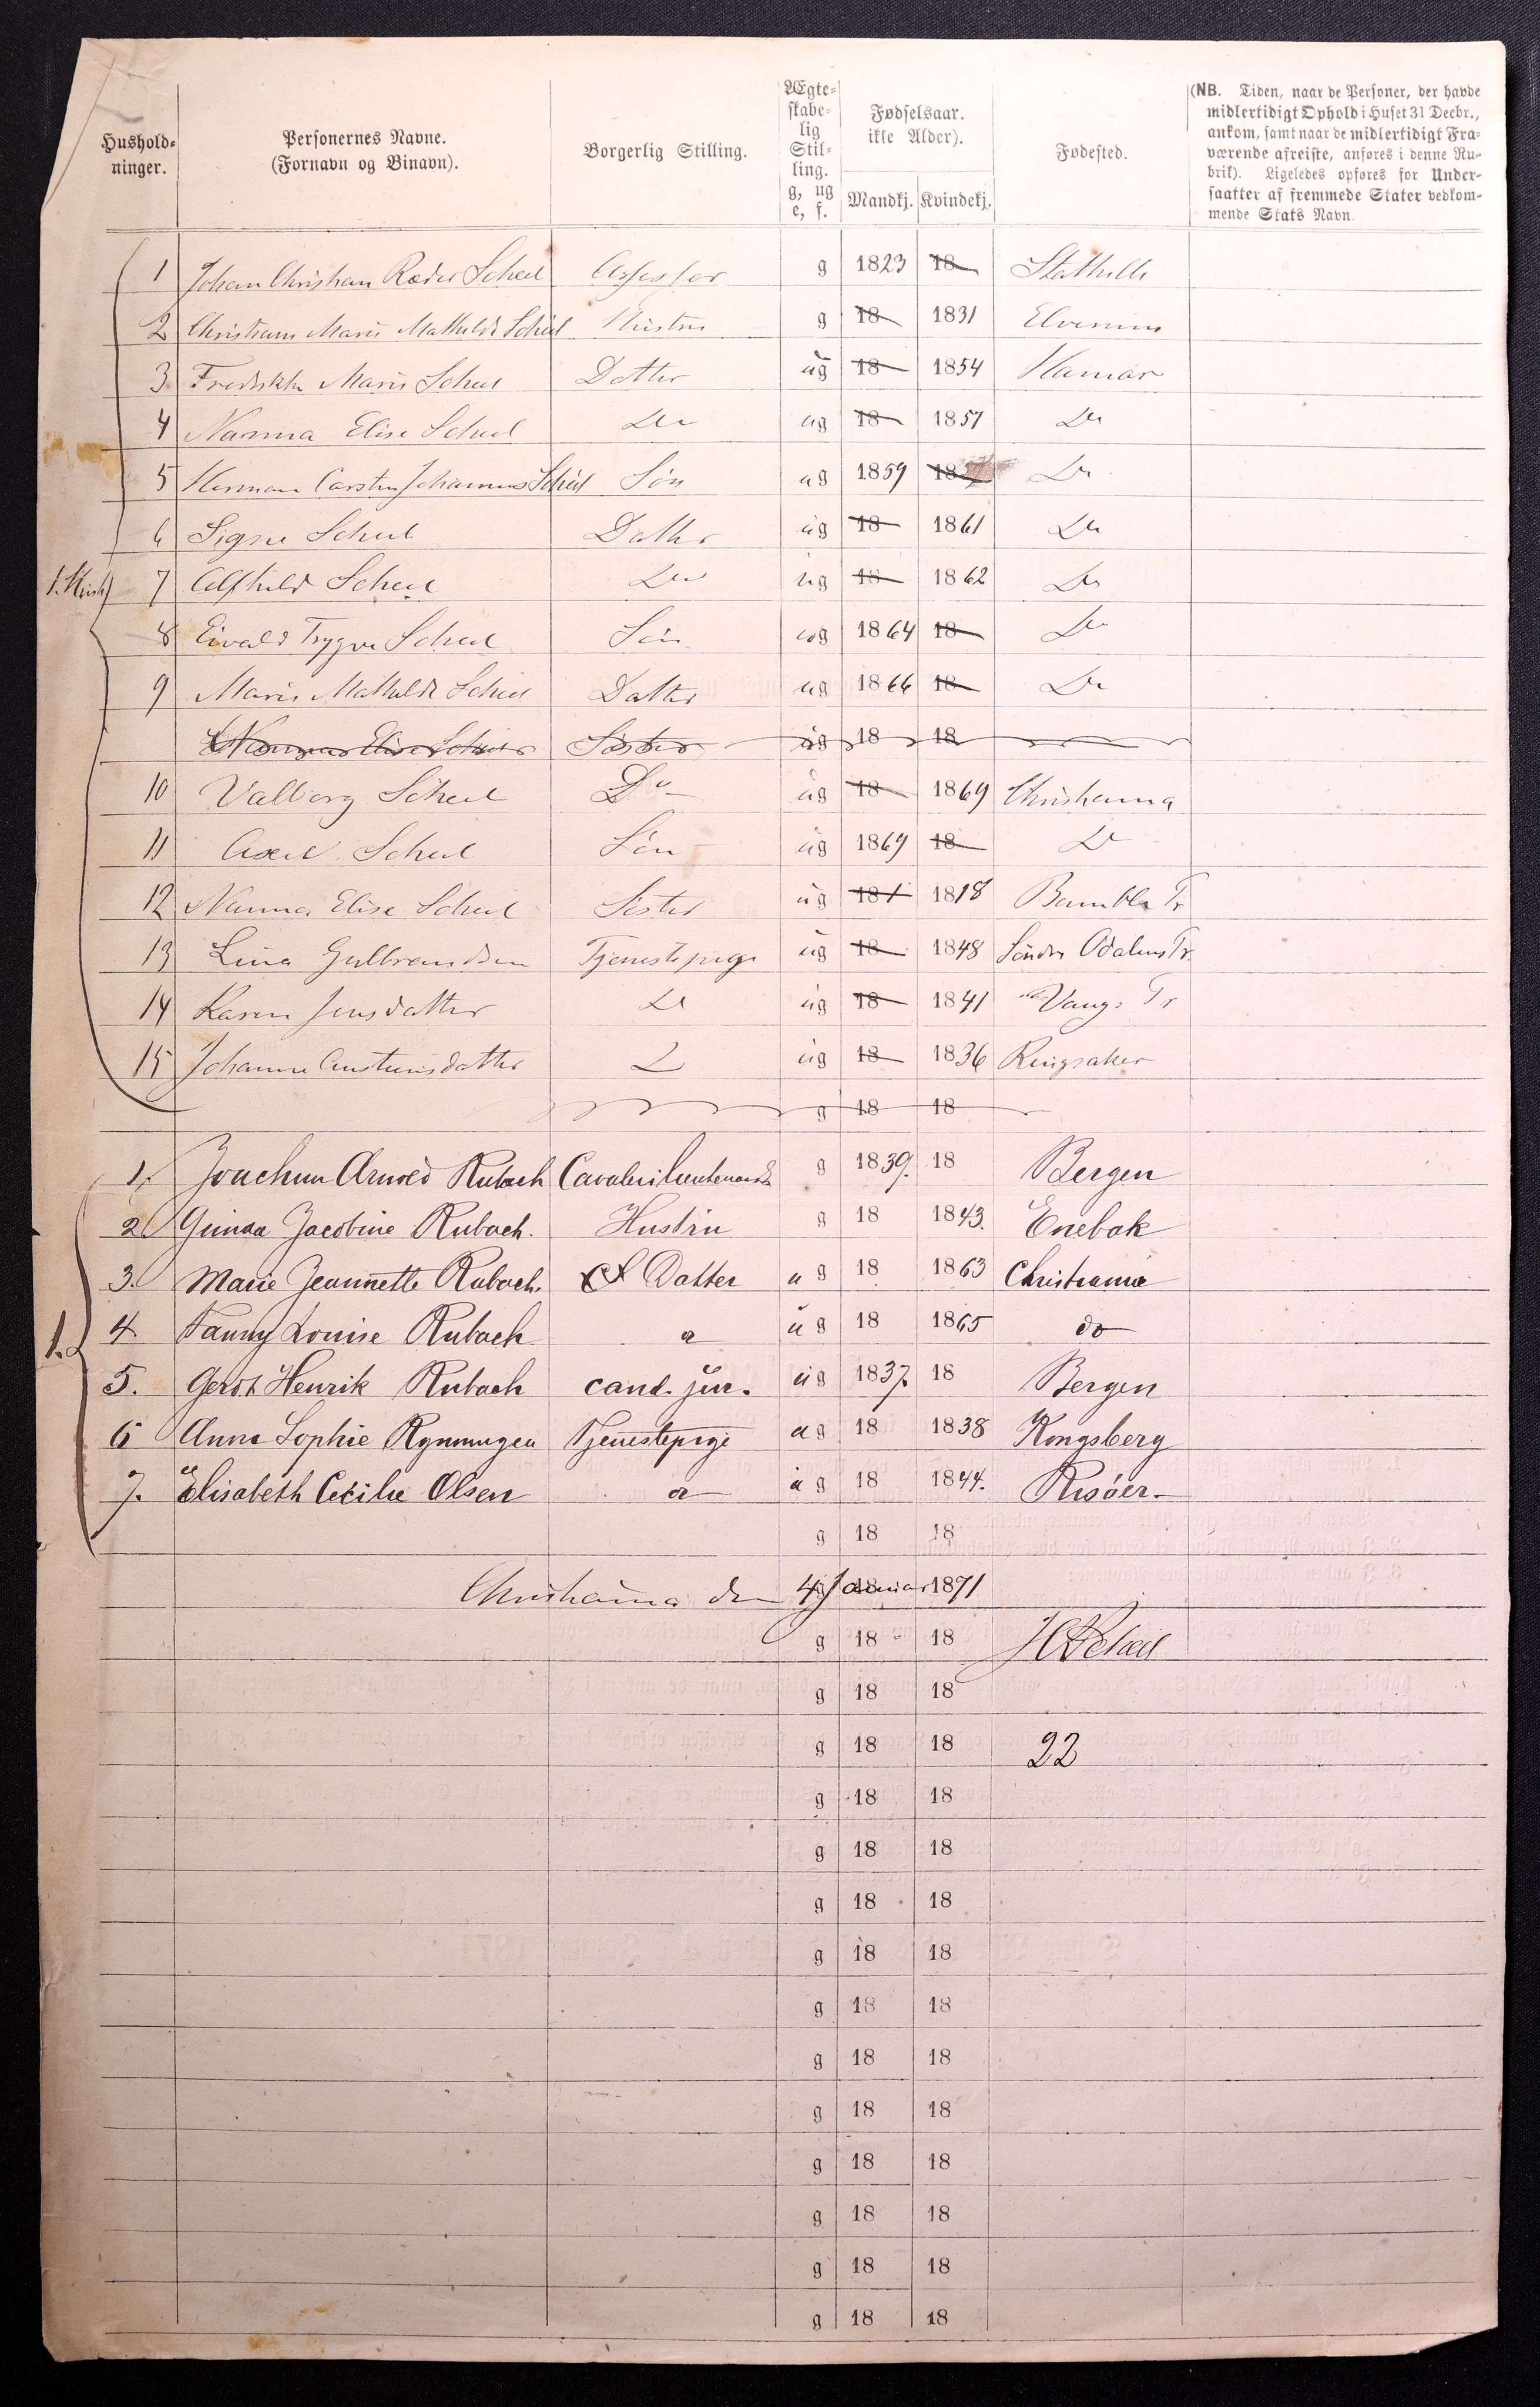 Hushold-
ninger.
Personernes Navne.
(Fornavn og Binavn).
Borgerlig Stilling.
Ægte-
skabe-
lig
Stil-
ling.
g, ug
e, f.
Fødselsaar.
ikke Alder).
Mandkj. Kvindekj.
Fødested.
(NB. Tiden, naar de Personer, der havde
midlertidigt Ophold i Huset 31 Decbr.,
ankom, samt naar de midlertidigt Fra-
værende afreiste, anføres i denne Ru-
brik). Ligeledes opføres for Under-
saatter af fremmede Stater vedkom-
mende Stats Navn.
1 Johan Christian Ræder Scheel Assessor g 1823 18 Stathelle
2 Christiane Marie Mathilde Scheel Hustru g 18 1831 Elverum
3 Fredrikke Marie Scheel Datter ug 18 1854 Hamar
4 Nanna Elise Scheel Do ug 18 1857 Do
5 Herman Carsten Johannes Scheel Søn ug 1859 18 Do
6 Signe Scheel Datter ug 18 1861 Do
7 Alfhild Scheel Do ug 18 1862 Do
8 Eivald Trygve Scheel Søn ug 1864 18 Do
9 Marie Mathilde Scheel Datter ug 1866 18 Do
Nanna Elise Scheel Søster ug 18 18
10 Valborg Scheel Do ug 18 1869 Christiania
11 Axel Scheel Søn ug 1869 18 Do
12 Nanna Elise Scheel Søster ug 181 1818 Bamble Pr
13 Lina Gulbrandsen Tjenestepige ug 18 1848 Søndre Odalens Pr.
14 Karen Jensdatter Do ug 18 1841 Vangs Pr
15 Johanne Austensdatter D ug 18 1836 Ringsaker
g 18 18
1. Joachim Arnold Rubach Cavalerilieutenant g 1839. 18 Bergen
2 Gunda Jacobine Rubach. Hustru g 18 1843. Enebak
3. Marie Jeannette Rubach. Datter ug 18 1863 Christiania
1. 4. Fanny Louise Rubach do ug 18 1865 do
5. Gerdt Henrik Rubach cand. jur. ug 1837. 18 Bergen
6 Anne Sophie Rynningen Tjenestepige ug 18 1838 Kongsberg
7. Elisabeth Cecilie Olsen do ug 18 1844. Risöer
g 18 18
Christiania den 4 Januar 1871
g 18 18 JCRScheel
g 18 18
g 18 18 22
g 18 18
g 18 18
g 18 18
g 18 18
g 18 18
g 18 18
g 18 18
g 18 18
g 18 18
g 18 18
g 18 18